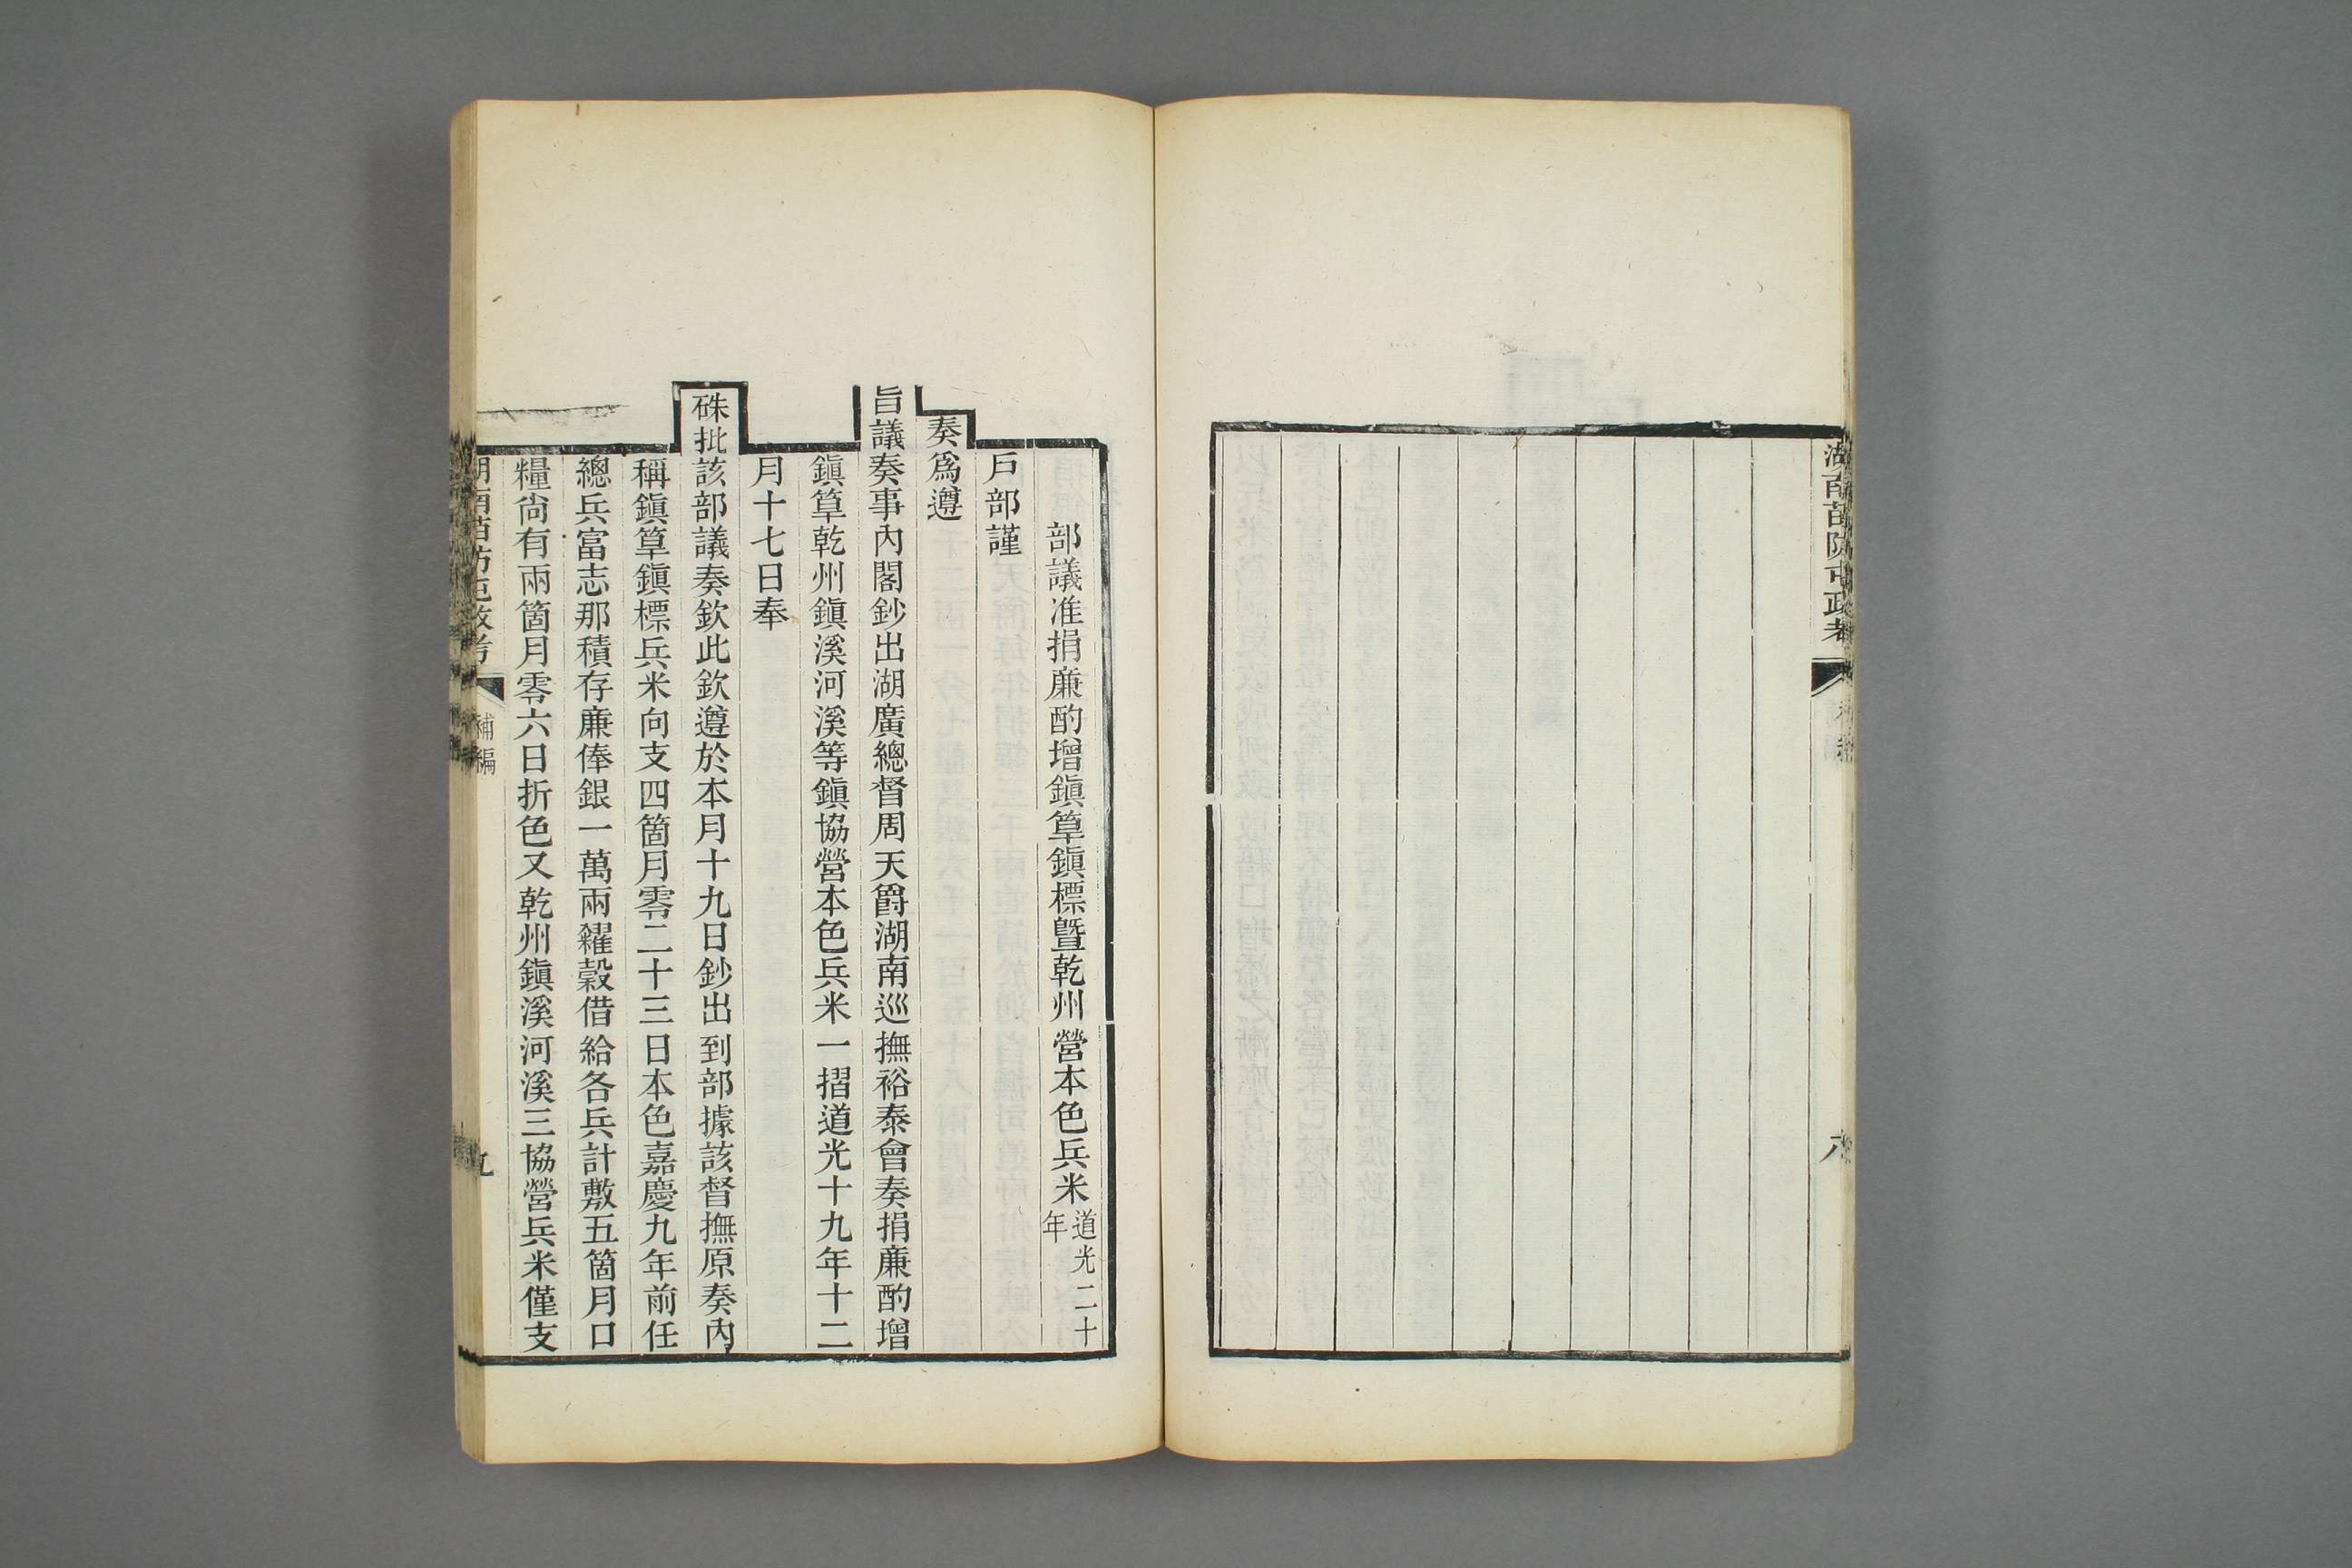 湖南苗防屯政考
六
部議准捐廉酌增鎭筸鎭標曁乾州營本色兵米道光二十年
戶部謹
奏爲遵
旨議奏事內閣鈔出湖廣總督周天爵湖南巡撫裕泰會奏捐廉酌增
鎭筸乾州鎭溪河溪等鎭協營本色兵米一摺道光十九年十二
月十七日奉
硃批該部議奏欽此欽遵於本月十九日鈔出到部據該督撫原奏內
稱鎭筸鎭標兵米向支四箇月零二十三日本色嘉慶九年前任
總兵富志那積存廉俸銀一萬兩糴穀借給各兵計敷五箇月口
糧尙有兩箇月零六日折色又乾州鎭溪河溪三協營兵米僅支
湖南苗防屯政考
補編
九